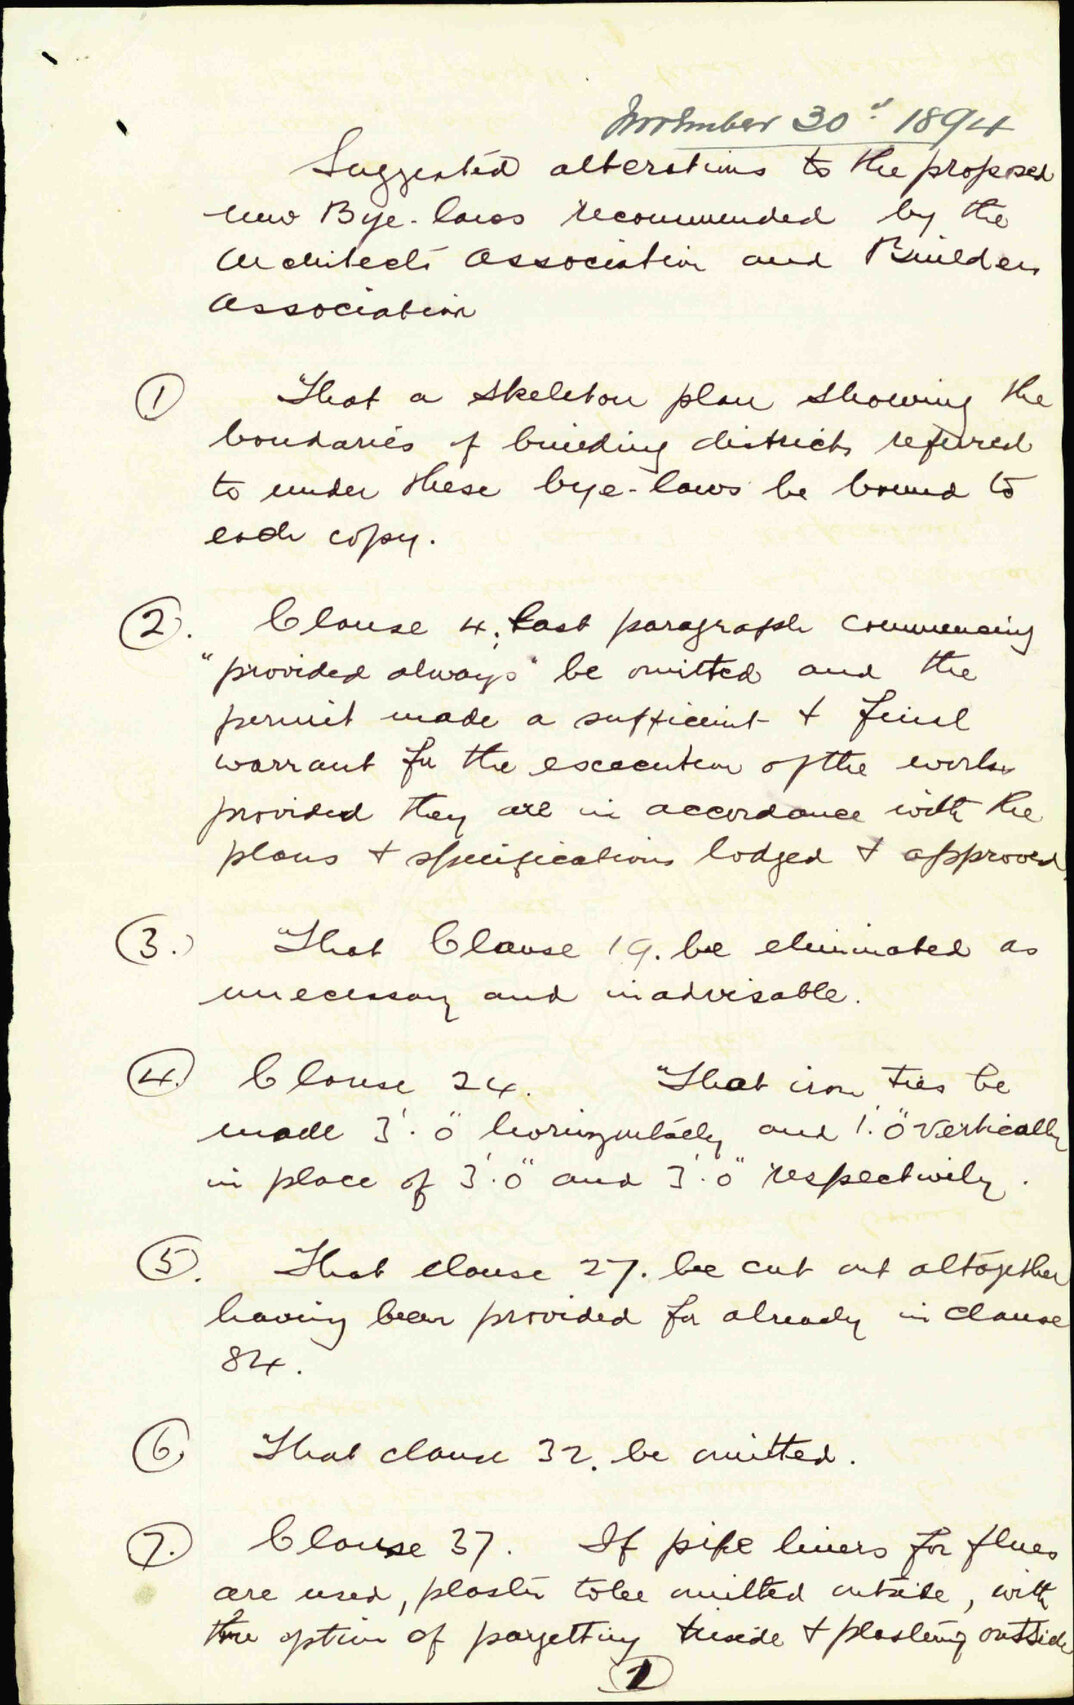 November 30th 1894
Suggested alterations to the proposed
new Bye-laws recommended by the
Architects Association and Builders
Association
① That a skeleton plan showing the
boundaries of building districts referred
to under these bye-laws be bound to
each copy.
②. Clause 4. Last paragraph commencing
"provided always" be omitted and the
permit made a sufficient + final
warrant for the execution of the works
provided they are in accordance with the
plans + specifications lodged + approved.
③. That Clause 19. be eliminated as
unecessary and inadvisable.
④. Clause 24. That iron ties be
made 3'.0" horizontally and 1'.0" vertically
in place of 3'.0" and 3'.0" respectively.
⑤. That clause 27. be cut out altogether
having been provided for already in clause
84.
⑥ That clause 32. be omitted.
⑦. Clause 37. If pipe liners for flues
are used, plaster to be omitted outside, with
the option of pargetting inside + plastering outside
1